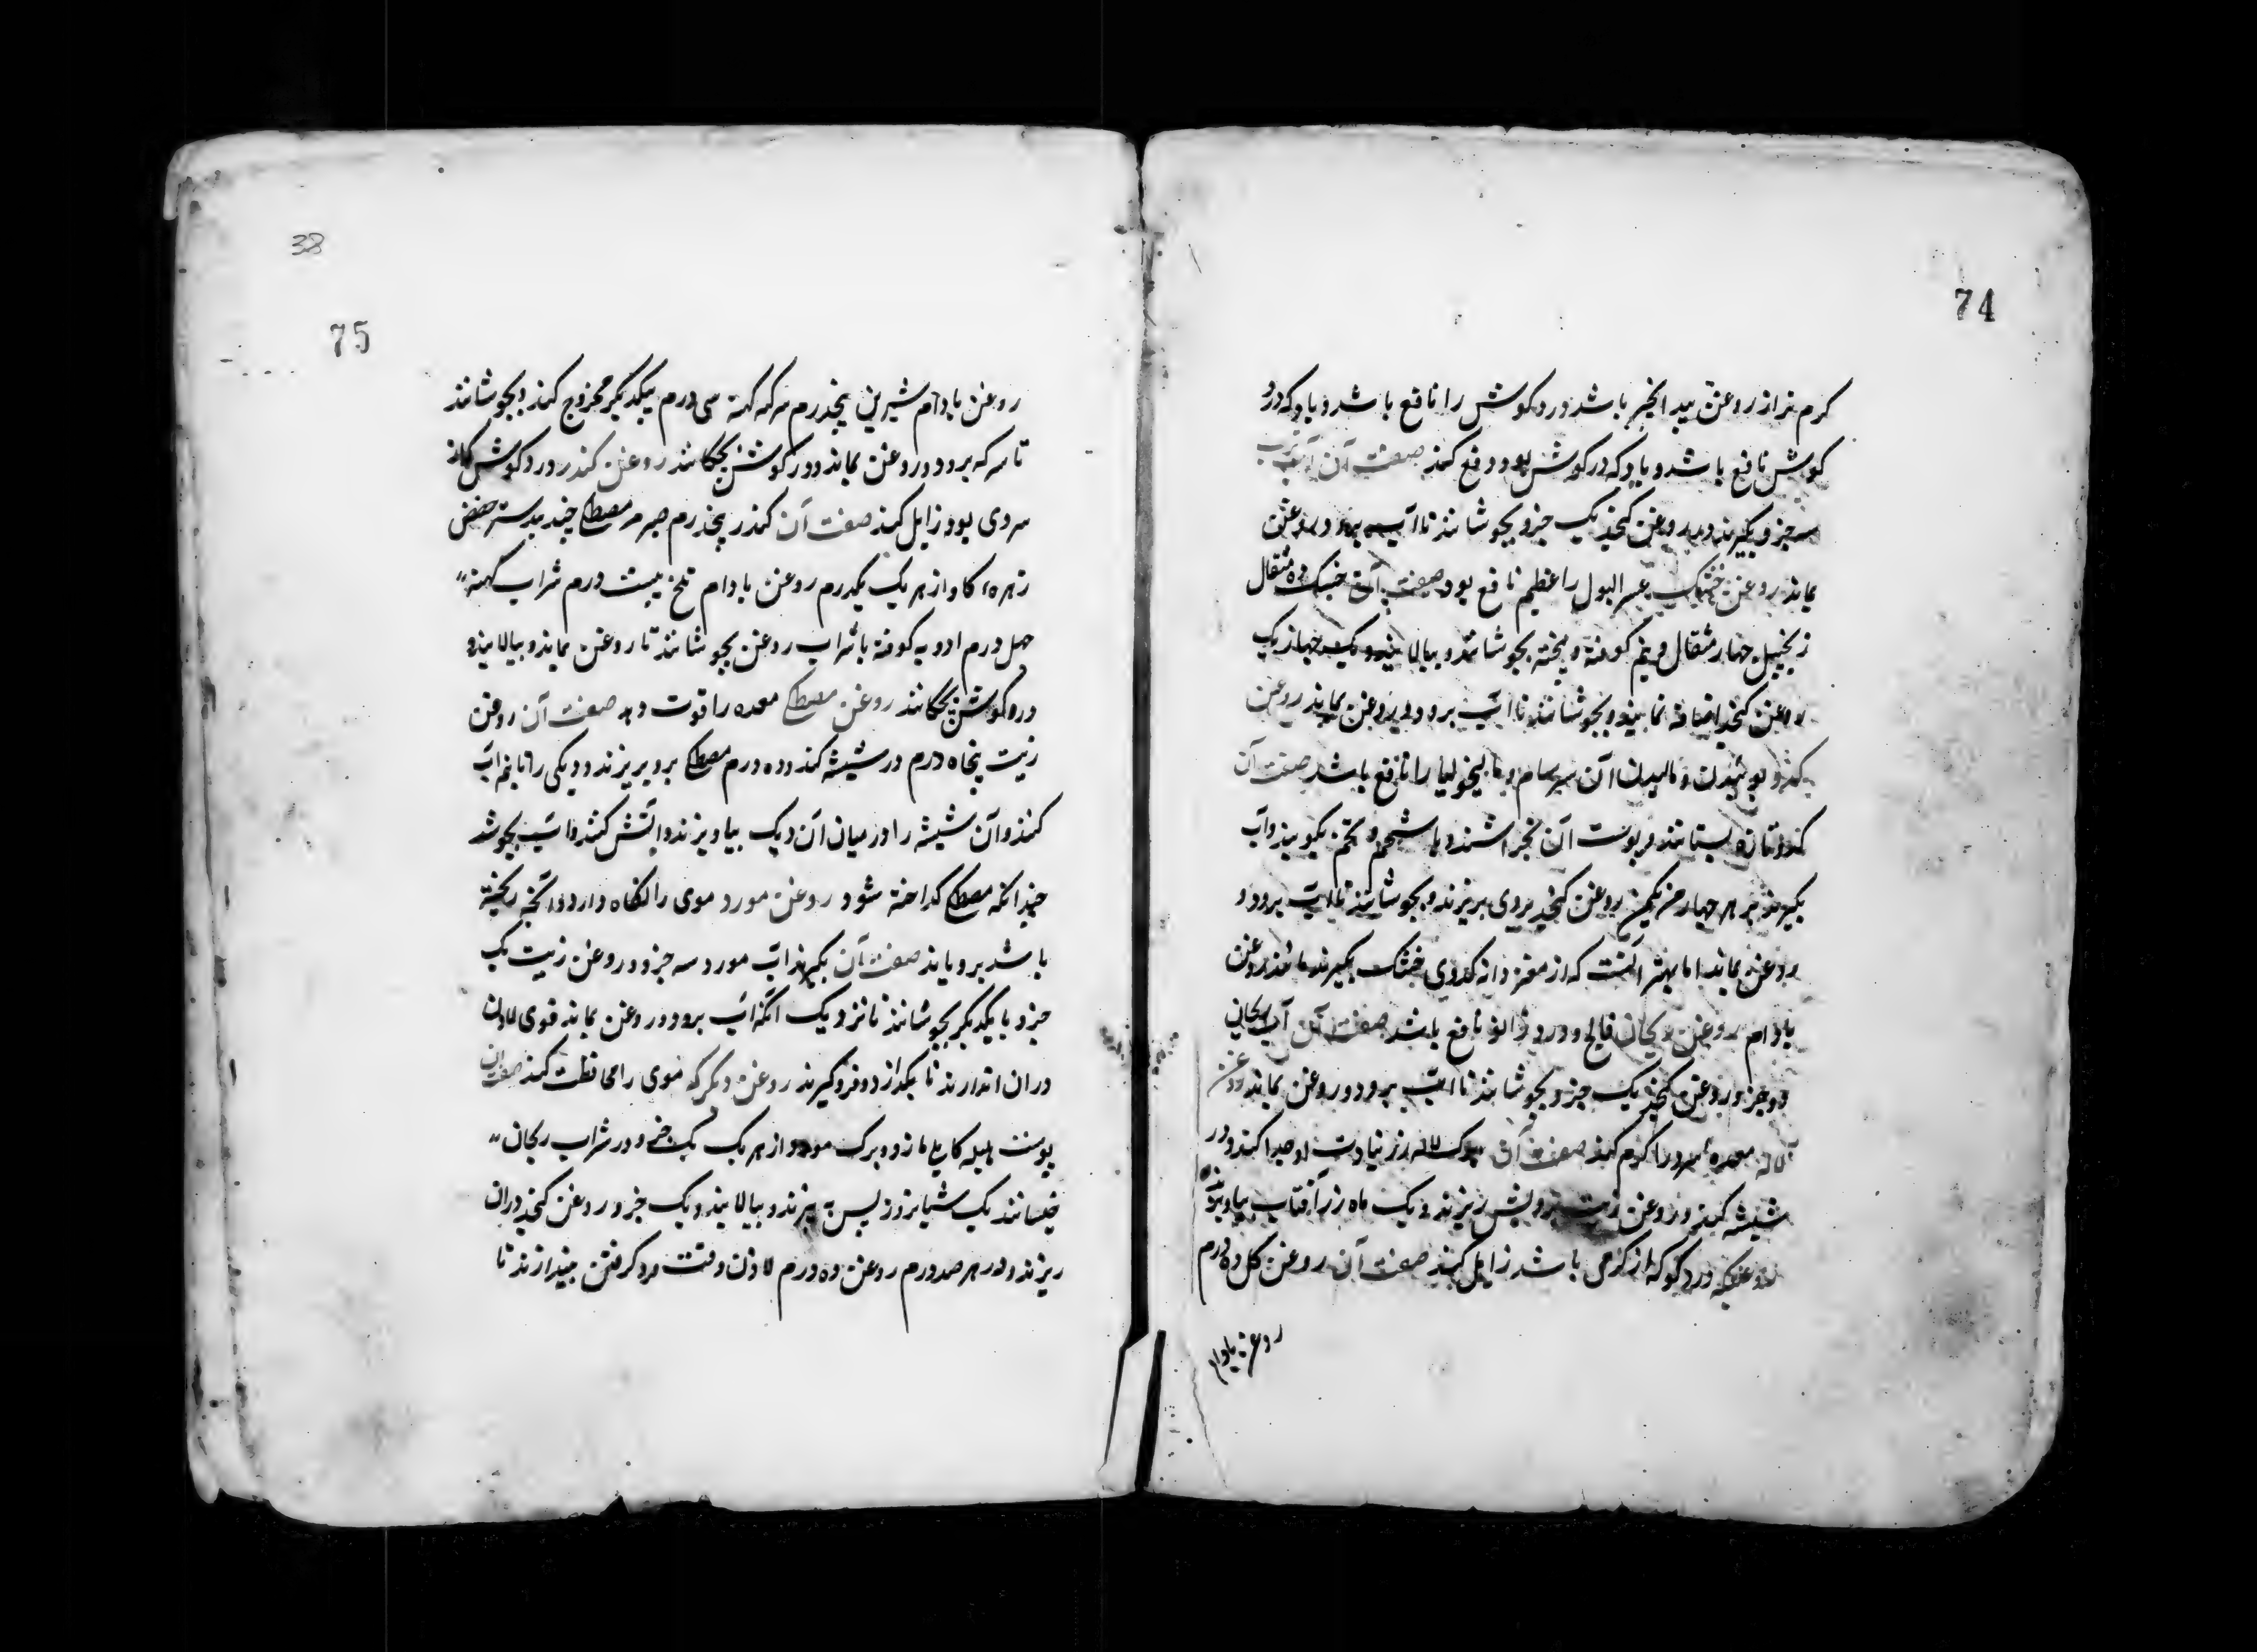 74
کرم تر از روغن بید انجیر باشد درد کوش را نافع باشد و باد که در
کوش نافع باشد و باد که در کوش بود دفع کند صفت آن آب
سه جزو بکیرند و روغن کنجد یک جزو بجوشانند تا آب برود و روغن
بماند روغن خسک عسر البول را عظیم نافع بود صفت آن خسک ده مثقال
زنجبیل چهار مثقال و نیم کوفته و بیخته بجوشانند و بپالایند و یک چهار یک
روغن کنجد اضافه نمایند و بجوشانند تا آب برود و روغن بماند روغن
کدو بوئیدن و مالیدن آن سرسام و مالیخولیا را نافع باشد صفت آن
کدو تازه بستانند و پوست آن بخراشند و با شحم و تخم بکوبند و آب
بکیرند بر هر چهار من یکمن روغن کنجد بروی بریزند و بجوشانند تا آب برود و
روغن بماند اما بهتر آنست که از مغز دانه کدوی خشک بکیرند مانند روغن
بادام روغن ریحان فالج و درد زانو نافع باشد صفت آن آب ریحان
دو جزو روغن کنجد یک جزو بجوشانند تا آب برود و روغن بماند روغن
لاله معده سرد را کرم کند صفت آن برک لاله از زیادت او جدا کند و در
شیشه کنند و روغن زیت برویش ریزند و یک ماه در آفتاب بیاویزند
روغنیکه درد کوکه از کرمی باشد زایل کند صفت آن روغن کل ده درم
روغن بادام
38
75
روغن بادام شیرین پنجدرم سرکه کهنه سی درم بیکدیکر ممزوج کنند و بجوشانند
تا سرکه برود و روغن بماند و در کوش بچکانند روغن کندر درد کوش که از
سردی بود زایل کند صفت آن کندر پنجدرم صبر مر مصطکی جندبیدستر حضض
زهره کاو از هر یک یکدرم روغن بادام تلخ بیست درم شراب کهنه
چهل درم ادویه کوفته با شراب روغن بجوشانند تا روغن بماند و بپالایند و
در کوش بچکانند روغن مصطکی معده را قوت دهد صفت آن روغن
زیت پنجاه درم در شیشه کنند و ده درم مصطکی برو بریزند و دیکی را تا نیم آب
کنند و آن شیشه را در میان آن دیک بیاویزند و آتش کنند و آب بجوشد
چندانکه مصطکی کداخته شود روغن مورد موی را نکاه دارد و آنچه ریخته
باشد برویاند صفت آن بکیرند آب مورد سه جزو و روغن زیت یک
جزو با یکدیکر بجوشانند تا نزدیک آنکه آب برود و روغن بماند قدری لادن
در آن اندازند تا بکدازد و فروکیرند روغن دیکر که موی را محافظت کند صفت آن
پوست هلیله کابلی مازو و برک مورد از هر یک یک جزو در شراب ریحان
خیسانند یک شبانروز پس بپزند و بپالایند و یک جزو روغن کنجد در آن
ریزند و در هر صد درم روغن ده درم لادن وقت فرو کرفتن بیندازند تا